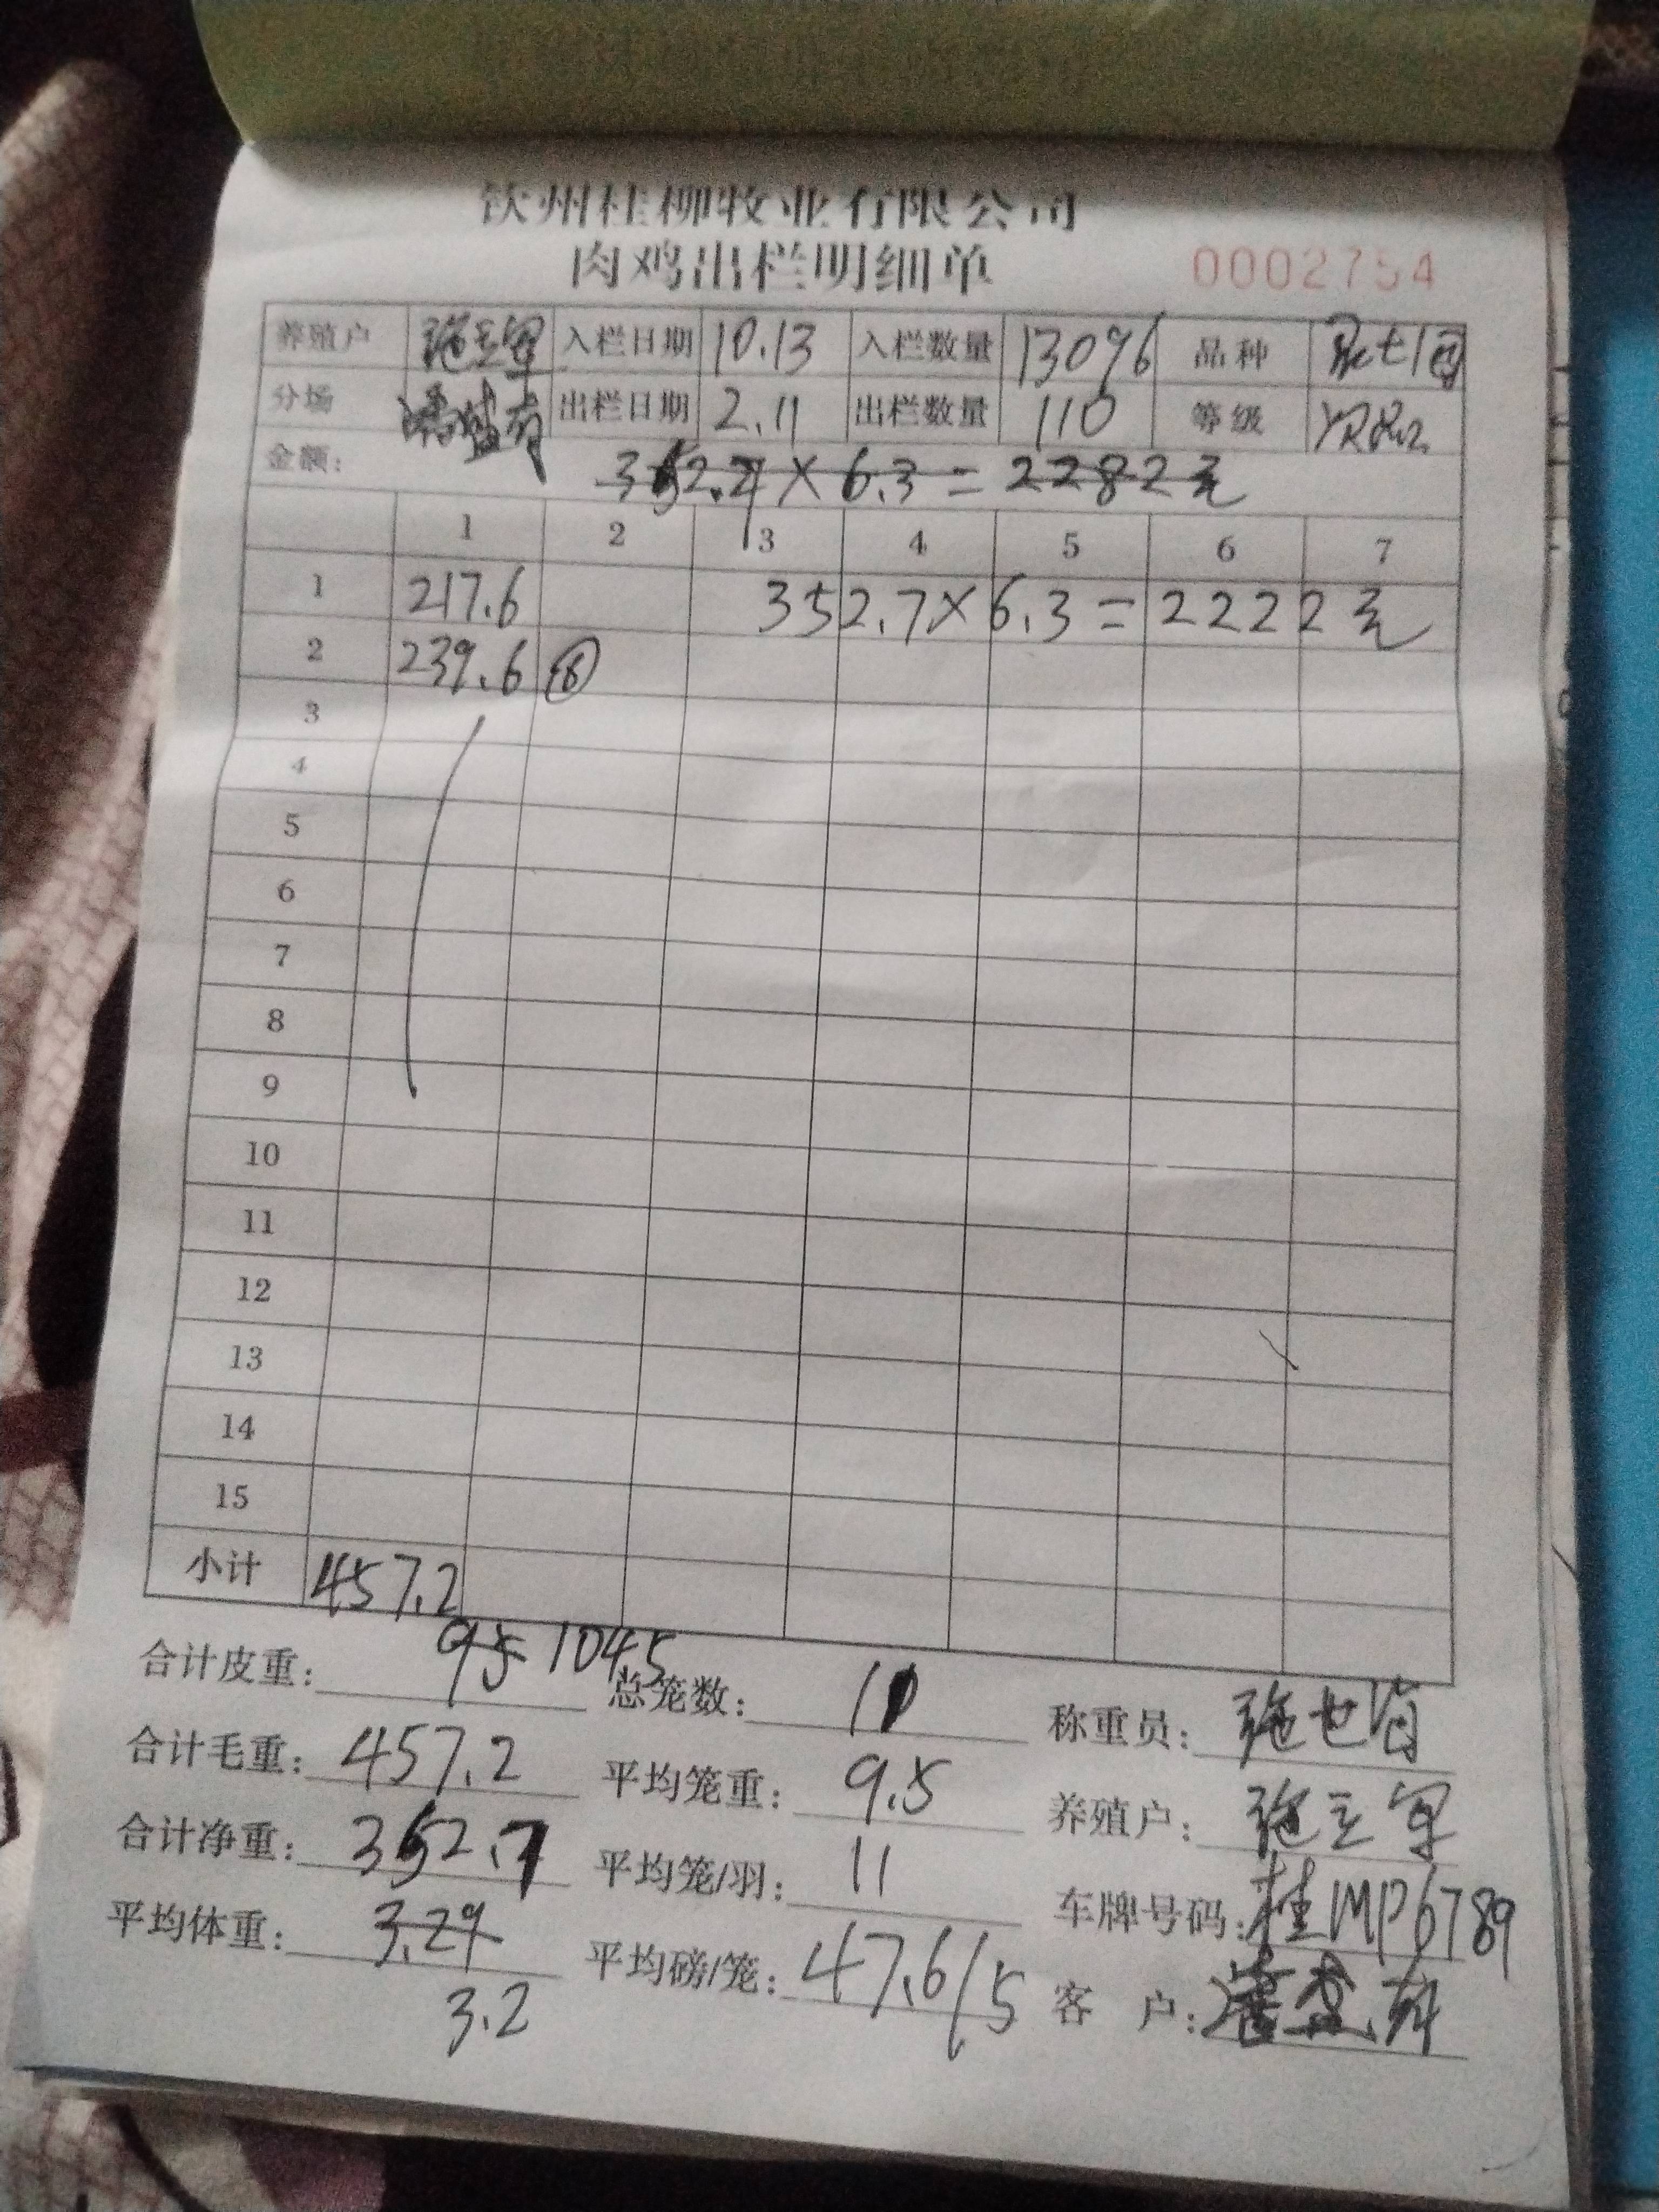 钦州桂柳牧业有限公司
肉鸡出栏明细单 0002754
养殖户 施立军 入栏日期 10.13 入栏数量 13096 品种
分场 出栏日期 2.11 出栏数量 110 等级
金额: 352.7×6.3=2282元
1 2 3 4 5 6 7
1 217.6 352.7×6.3=2222元
2 239.6 ⑧
3
4
5
6
7
8
9
10
11
12
13
14
15
小计 457.2
合计皮重: 95 104.5 总笼数: 11 称重员: 施世省
合计毛重: 457.2 平均笼重: 9.5 养殖户: 施立军
合计净重: 352.7 平均笼/羽: 11 车牌号码: 桂MP6789
平均体重: 3.29 平均磅/笼: 47.6/5 客 户:
3.2